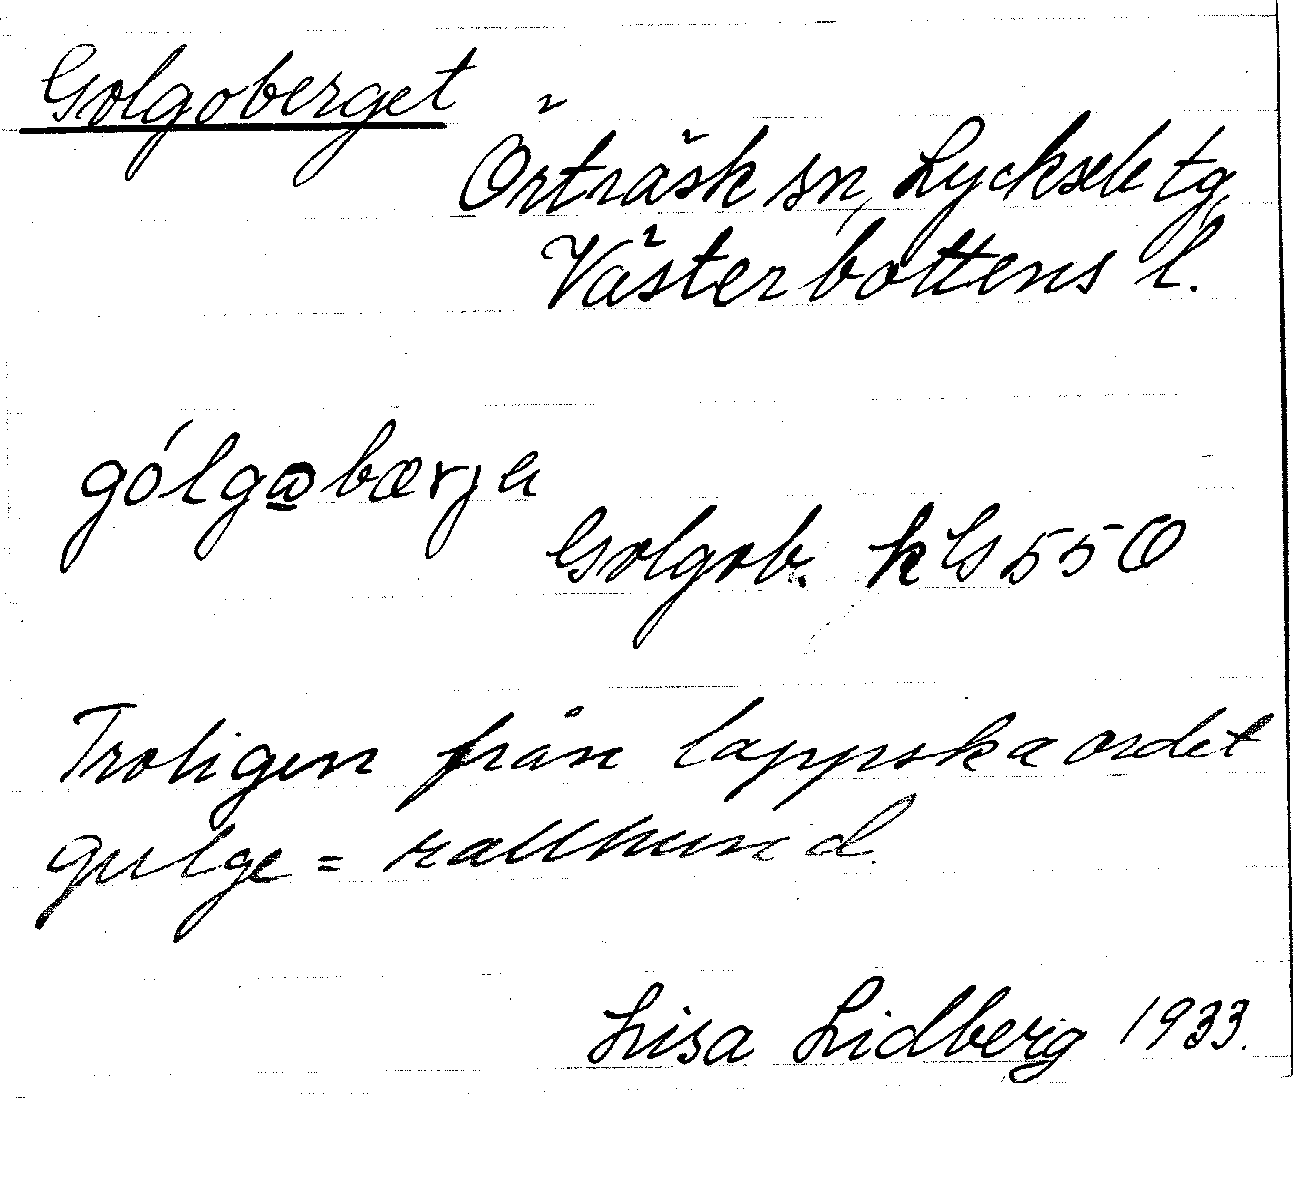 Golgoberget
Örträsk sn, Lycksele tg,
Västerbottens l.
gólgɷbærjа
Golgob. kG 550
Troligen från lappska ordet
gulge = rallhund.
Lisa Lidberg 1933.